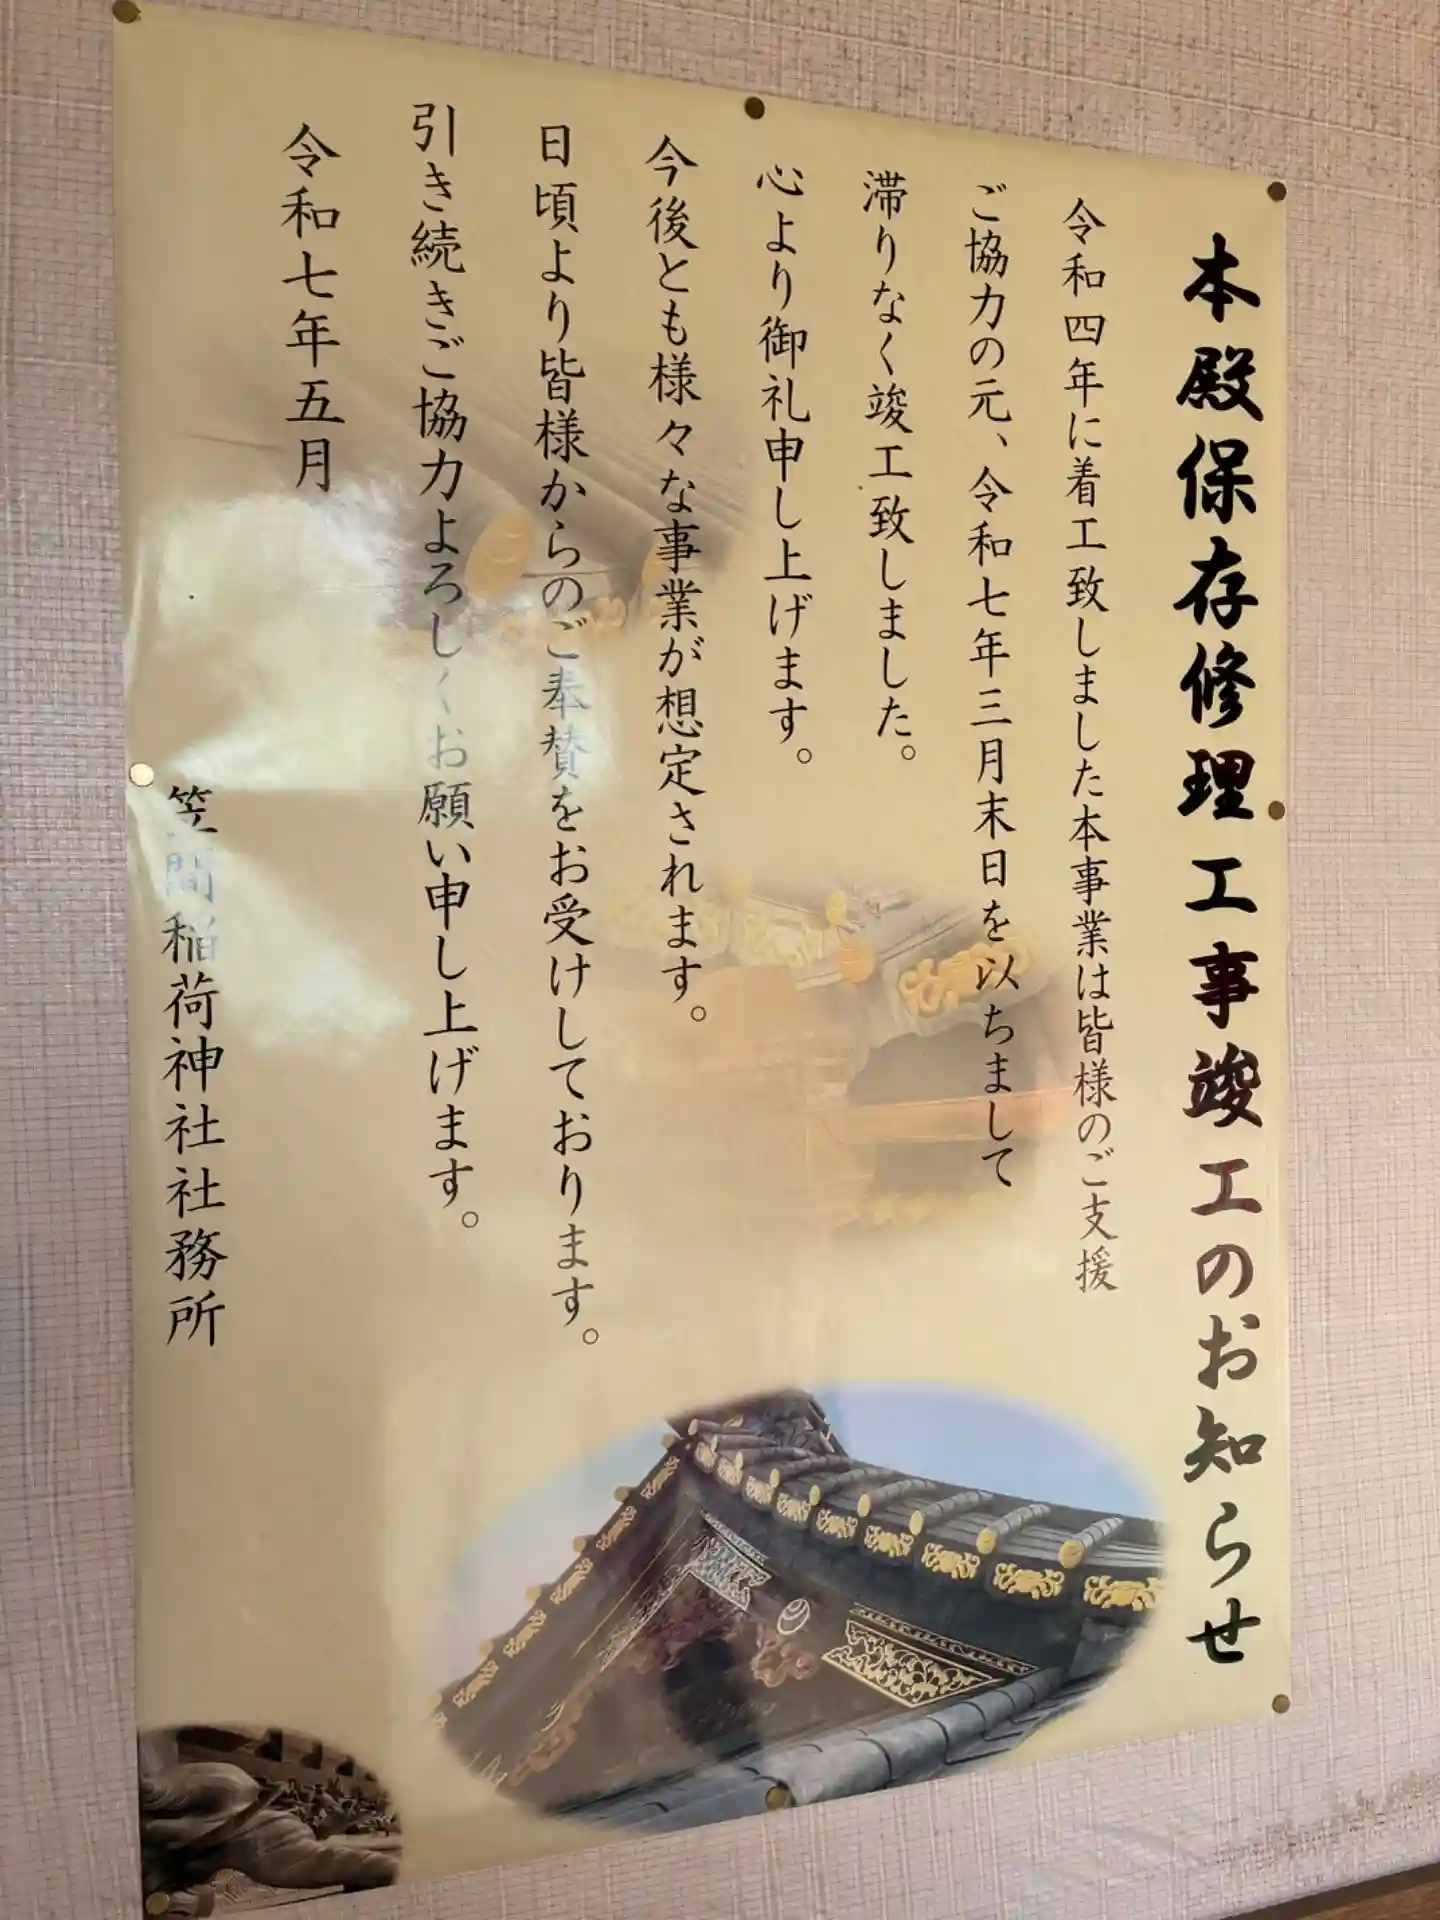 本殿保存修理工事竣工のお知らせ
令和四年に着工致しました本事業は皆様のご支援
ご協力の元、令和七年三月末日を以ちまして
滞りなく竣工致しました。
心より御礼申し上げます。
今後とも様々な事業が想定されます。
日頃より皆様からのご奉賛をお受けしております。
引き続きご協力よろしくお願い申し上げます。
令和七年五月
笠間稲荷神社社務所